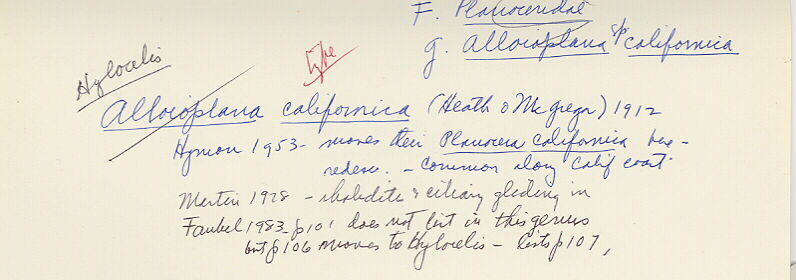 F. Planoceridae
g. Alloioplana sp californica
Hylocelis
type
Alloioplana californica (Heath & McGregr) 1912
Hyman 1953 - moves their Planocera californica here -
redescr. - common along Calif coast
Martin 1978 - rhabdite & ciliary gliding in
Faubel 1983 - p101 does not list in this genus
but p106 moves to Hylocelis - lists p107,